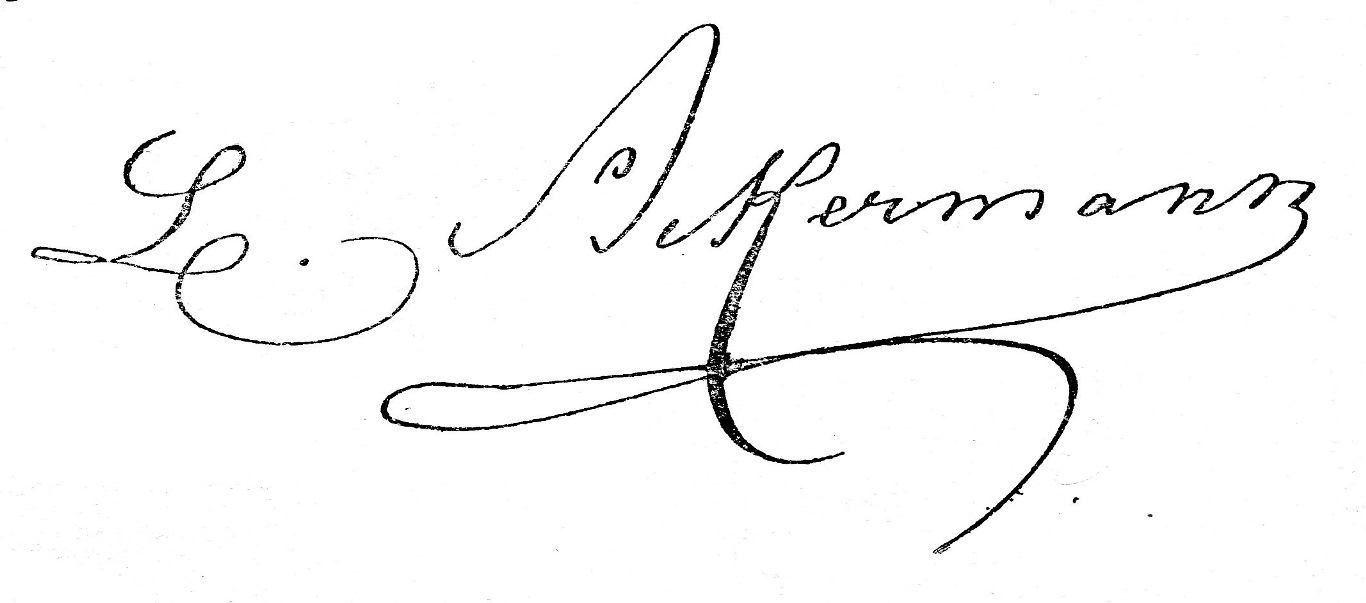 L. Ackermann